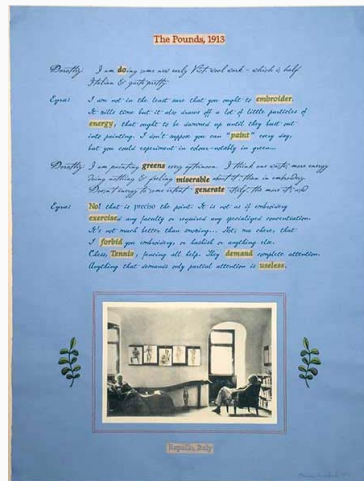 The Pounds, 1913
Dorothy: I am doing some new early Vict. wool work - which is half
Italian & quite pretty.
Ezra: I am not in the least sure that you ought to embroider.
It kills time but it also draws off a lot of little particles of
energy, that ought to be dammed up until they burst out
into painting. I don't suppose you can "paint" every day,
but you could experiment in colour-notably in green...
Dorothy: I am painting greens every afternoon. I think one wastes more energy
doing nothing & feeling miserable about it than in embroidery.
Doesn't energy to some extent generate itself, the more it's used
Ezra: No! that is precise the point. It is not as if embroidery
exercised any faculty or required any specialized concentration.
It's not much better than smoking... Dot, ma chère, that
I forbid you embroidery, or hashish or anything else.
Chess, Tennis, fencing all help. They demand complete attention.
Anything that demands only partial attention is useless.
Rapallo, Italy